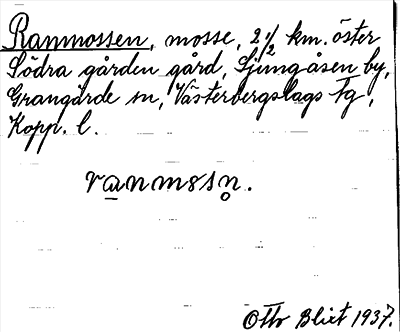 Ranmossen, mosse, 2 1/2 km. öster
Södra gården gård, Ljungåsen by,
Grangärde sn, Västerbergslags Fg,
Kopp. l.
ranmosn.
Otto Blixt 1937.